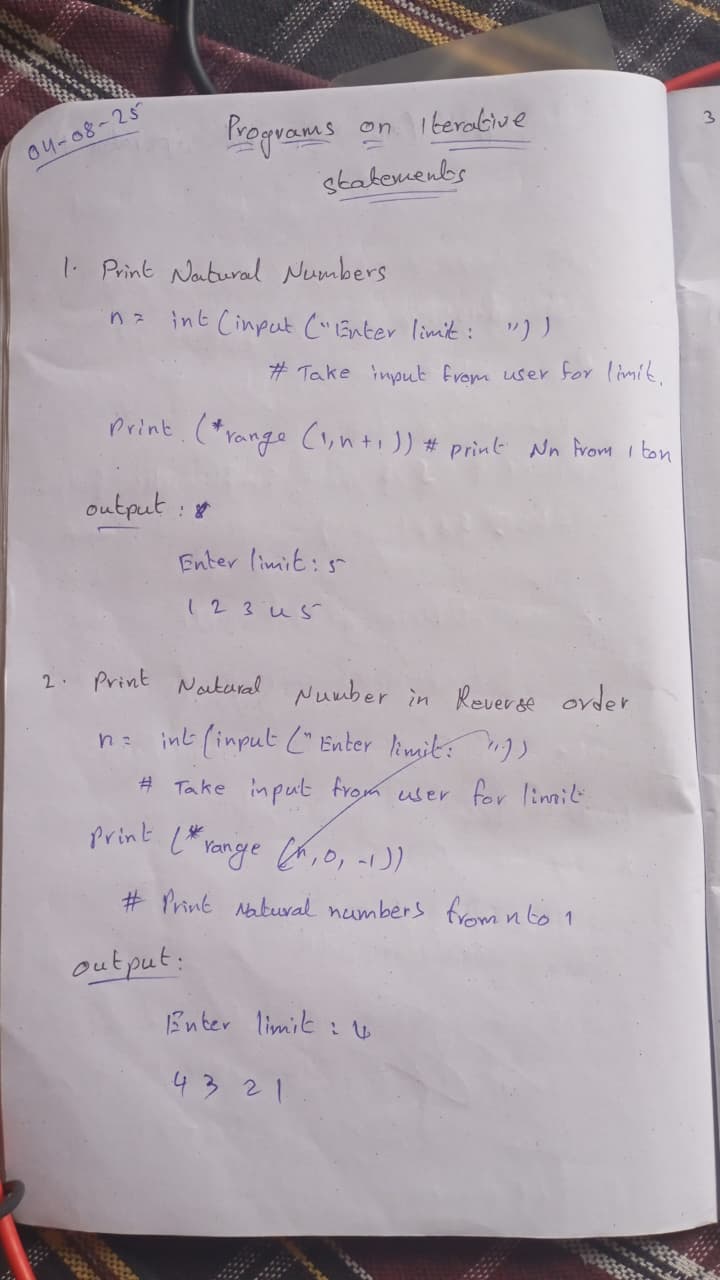 04-08-25
Programs on Iterative
statements
3
1. Print Natural Numbers
n = int (input ("Enter limit: "))
# Take input from user for limit.
Print (*range (1, n+1)) # print Nn from 1 to n
output :
Enter limit: 5
1 2 3 4 5
2. Print Natural Number in Reverse order
n = int (input (" Enter limit: "))
# Take input from user for limit
Print (*range (n, 0, -1))
# Print Natural numbers from n to 1
output:
Enter limit : 4
4 3 2 1